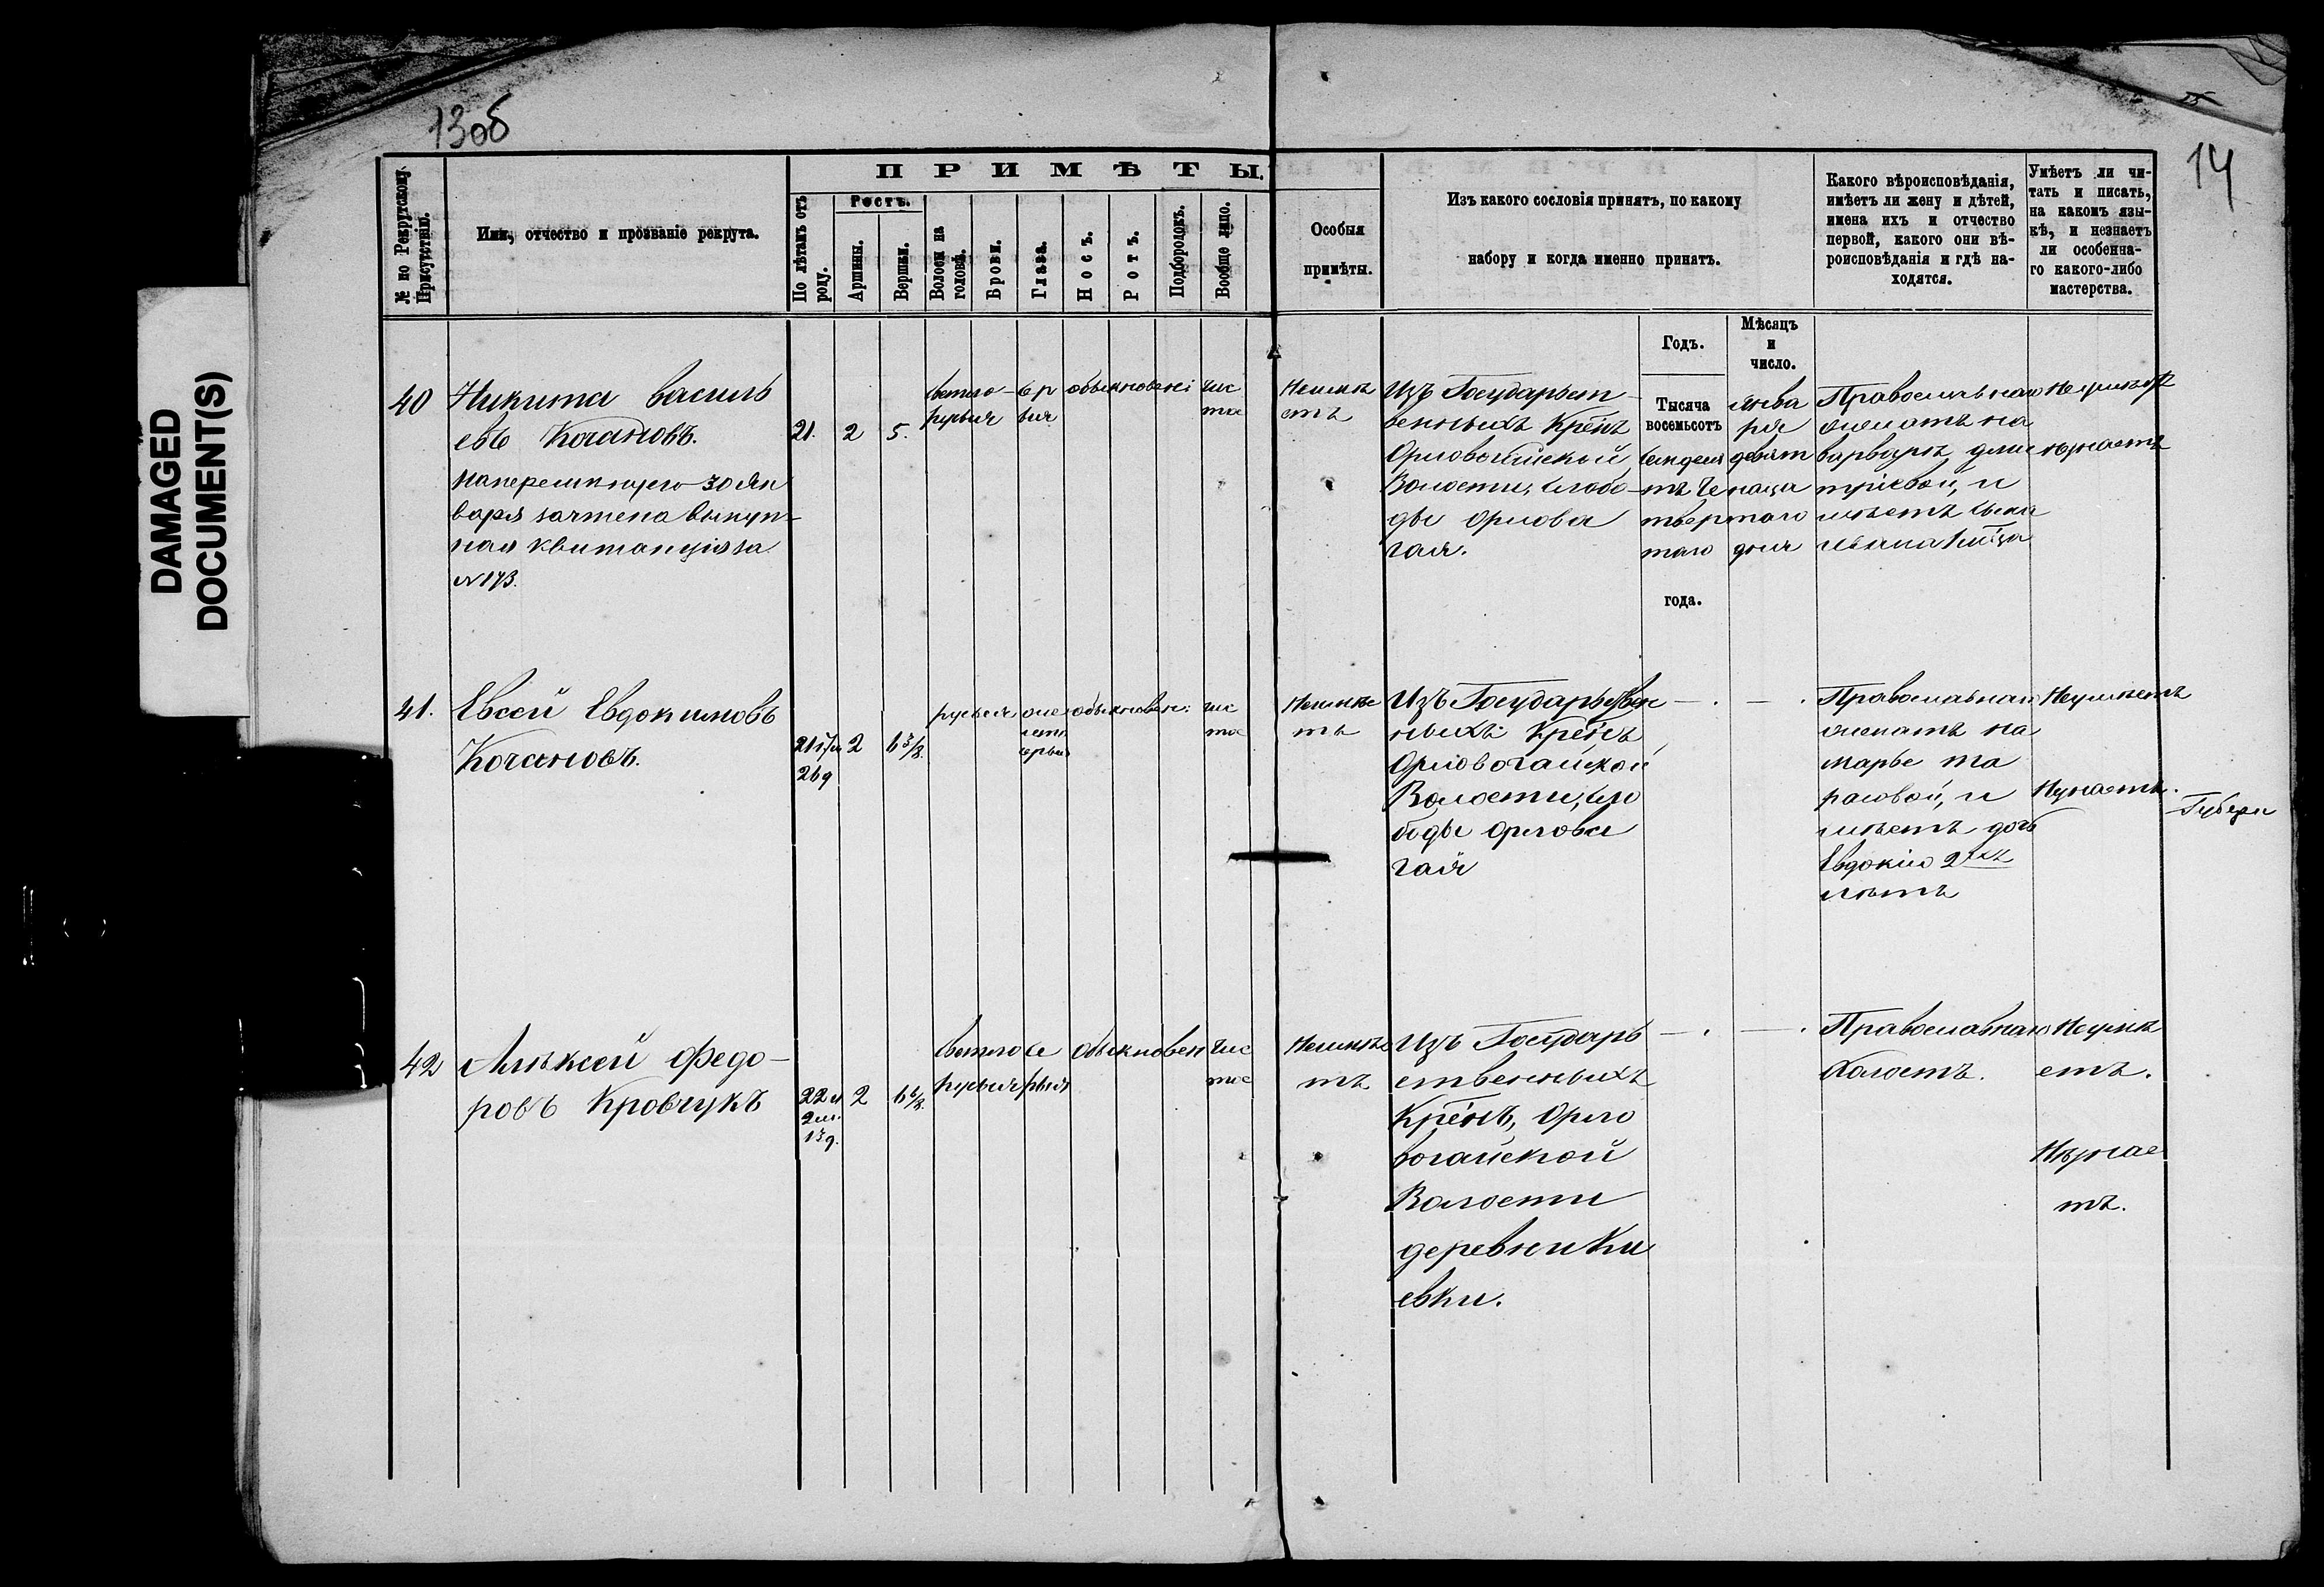 DAMAGED
DOCUMENT(S)
13об
14
ПРИМѢТЫ.
№ по Рекрутскому Присутствію.
Имя, отчество и прозваніе рекрута.
По лѣтамъ отъ роду.
Ростъ.
Аршины.
Вершки.
Волосы на головѣ.
Брови.
Глаза.
Носъ.
Ротъ.
Подбородокъ.
Вообще лицо.
Особыя
примѣты.
Изъ какого сословія принятъ, по какому
набору и когда именно принятъ.
Какого вѣроисповѣданія,
имѣетъ ли жену и дѣтей,
имена ихъ и отчество
первой, какого они вѣ-
роисповѣданія и гдѣ на-
ходятся.
Умѣетъ ли чи-
тать и писать,
на какомъ язы-
кѣ, и незнаетъ
ли особенна-
го какого-либо
мастерства.
Годъ.
Мѣсяцъ
и
число.
40
Никита Василь
евъ Кочановъ.
30 Ян
варя зачтена выкуп-
ная квитанція за
№ 173.
21. 2 5.
светло-
русыя
обыкновен
чис
тое
Неимѣ
етъ
Изъ Государст-
венныхъ Крен
Орловогайской
Волости, слобо-
ды Орлова
гая.
Тысяча
восемьсотъ
семдеся
тъ Че
твер
таго
года.
Янва
ря
девят
надца
таго
дня
Православнаго
женатъ на
Варваре Дми
тріевой, и
имѣетъ сына
Неумѣет
незнаетъ
41.
Евсей Евдокимовъ
Кочановъ.
2
русыя
обыкновен.
чис
тое
Неимѣе
тъ
Изъ Государствен
ныхъ Крен
Орловогайской
Волости, сло
боды Орлова
гая
— . — .
Православнаго
женатъ на
Марье Та
расовой, и
имѣетъ дочь
Евдокію 2хъ
лѣтъ
Неумѣетъ
Незнаетъ.
42
Алѣксей Федо-
ровъ Кровчукъ
22 л
2 м.
13 д.
2
светло
русыя
се
рыя
Обыкновен
чис
тое
Неимѣе
тъ
Изъ Государ
ственныхъ
Крен, Орло
вогайской
Волости
деревни Ки
евки.
— . — .
Православнаго
Холостъ.
Неумѣ
етъ.
Незнае
тъ.